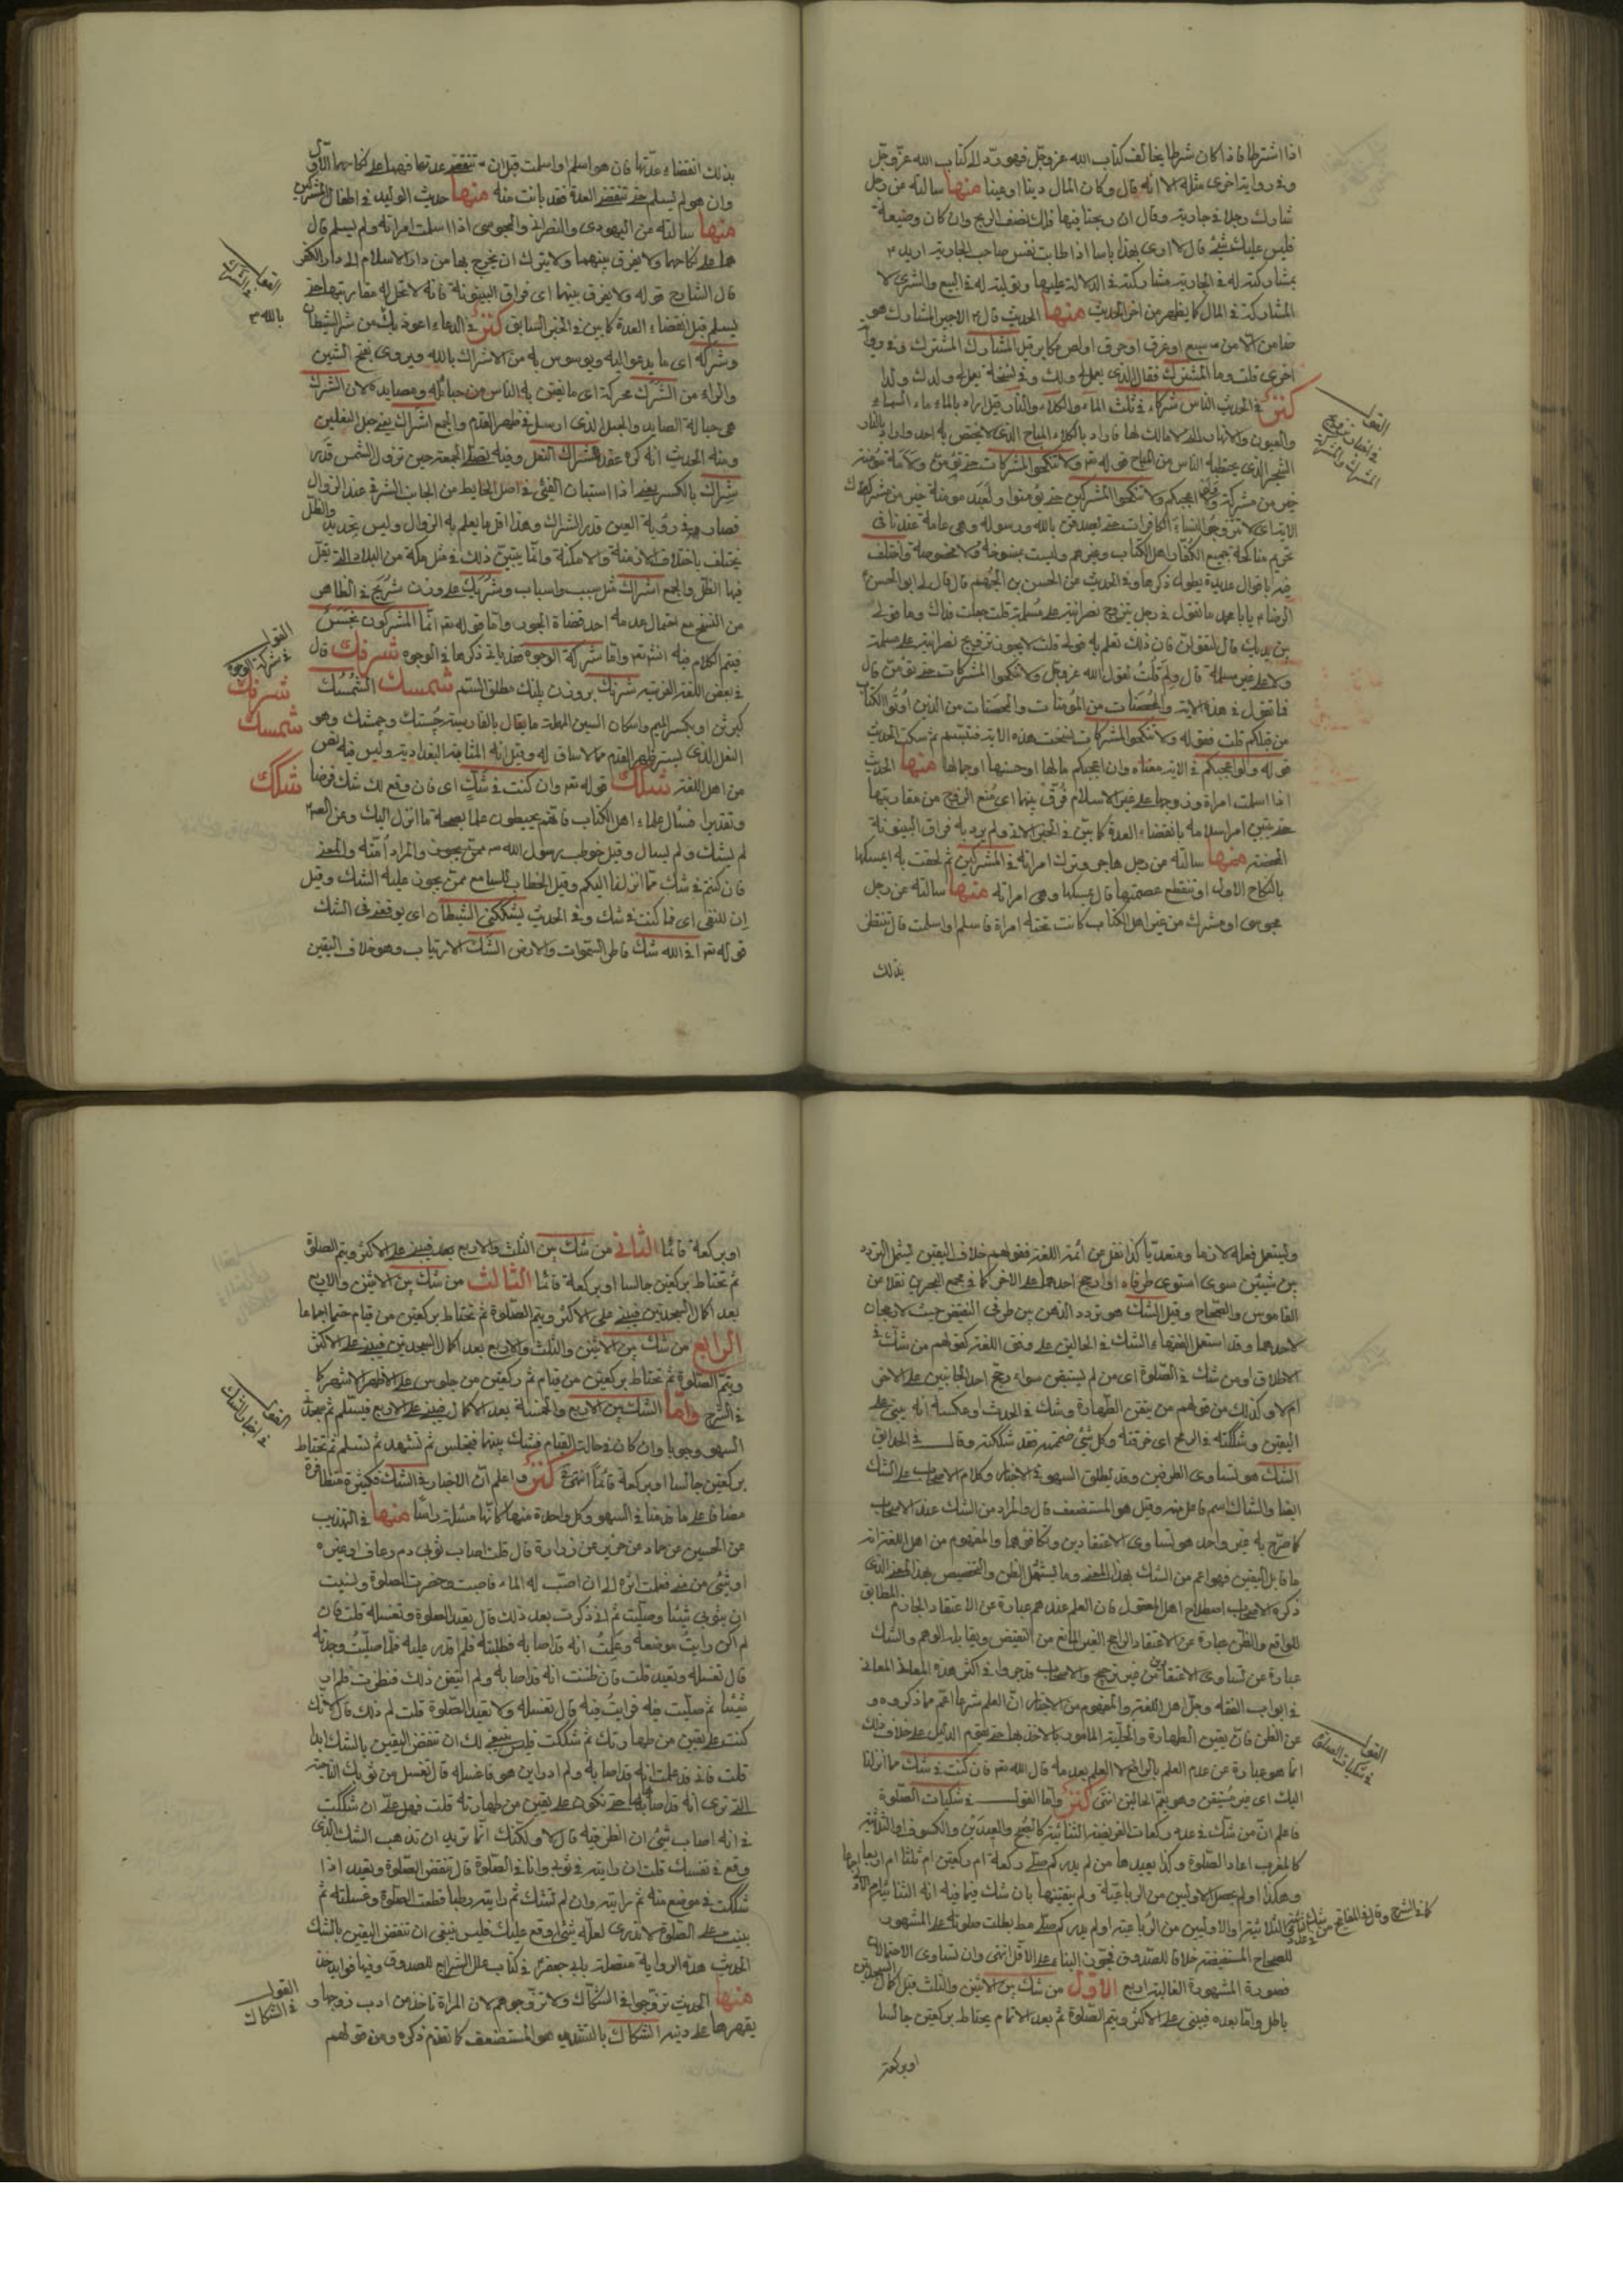 اذا اشترطا فاذا كان شرطا يخالف كتاب الله عز وجل فهو رد الى كتاب الله عز وجل
وفى رواية اخرى مثله الا انه قال وكان المال دينا او عينا منها سالته عن رجل
شارك رجلا فى جارية وقال ان ربحنا فيها فلك نصف الربح وان كان وضيعة
فليس عليك شئ قال لا ارى بهذا باسا اذا طابت نفس صاحب الجارية
المشاركة فى المال كما يظهر من اخر الحديث منها الحديث قال الاجير المشارك هو
ضامن الا من سبع او غرق او حرق او لص مكابر قيل المشارك المشترك وفى رواية
اخرى قلت وما المشترك فقال الذى يعمل لى ولك وفى نسخة يعمل لك ولذا
كنز فى الحديث الناس شركاء فى ثلث الماء والكلاء والنار قيل اراد بالماء ماء السماء
والعيون والانهار التى لا مالك لها واراد بالكلاء المباح الذى لا يختص به احد واراد بالنار
الشجر الذى يحتطبه الناس من المباح قوله تعه ولا تنكحوا المشركات حتى يؤمن ولامة مؤمنة
خير من مشركة ولو اعجبتكم ولا تنكحوا المشركين حتى يؤمنوا ولعبد مومن خير من مشرك
الاية اى لا تتزوجوا النساء الكافرات حتى يصدقن بالله ورسوله وهى عامة عندنا فى
تحريم مناكحة جميع الكفار اهل الكتاب وغيرهم وليست بمنسوخة ولا مخصوصة واختلف
فيه باقوال عديدة يطول ذكرها وفى الحديث عن الحسن بن الجهم قال قال لى ابو الحسن
الرضا يابا محمد ما تقول فى رجل يتزوج نصرانية على مسلمة قلت جعلت فداك وما قولى
بين يديك قال لتقولن فان ذلك تعلم به قولى قلت لا يجوز تزويج نصرانية على مسلمة
ولا على غير مسلمة قال ولم قلت لقول الله عز وجل ولا تنكحوا المشركات حتى يؤمن قال
فما تقول فى هذه الاية والمحصنات من المؤمنات والمحصنات من الذين اوتوا الكتاب
من قبلكم قلت فقوله ولا تنكحوا المشركات نسخت هذه الاية فتبسم ثم سكت الحديث
قوله ولو اعجبكم فى الاية معناه وان اعجبكم مالها او حسنها او جمالها منها الحديث
اذا اسلمت امراة وزوجها على غير الاسلام فرق بينهما اى يمنع الزوج من مقاربتها
حتى يتبين امر اسلامه بانقضاء العدة كما يبين فى الخبر الاتى ولم يرد به فراق البينونة
المحضة منها سالته عن رجل هاجر وترك امراته فى المشركين ثم لحقت به ايمسكها
بالنكاح الاول او تنقطع عصمتها قال يمسكها وهى امراته منها سالته عن رجل
مجوسى او مشرك من غير اهل الكتاب كانت تحته امراة فاسلم او اسلمت قال ينتظر
بذلك
القول
بذلك انقضاء عدتها فان هو اسلم او اسلمت قبل ان تنقضى عدتها فهما على نكاحهما الاول
وان هو لم يسلم حتى تنقضى العدة فقد بانت منه منها حديث الوليد فى اطفال المشركين
منها سالته عن اليهودى والنصرانى والمجوسى اذا اسلمت امراته ولم يسلم قال
هما على نكاحهما ولا يفرق بينهما ولا يترك ان يخرج بها من دار الاسلام الى دار الكفر
قال الشارح قوله ولا يفرق بينهما اى فراق البينونة فانه لا تحل له مقاربتها حتى
يسلم قبل انقضاء العدة كما بين فى الخبر السابق كنز فى الدعاء اعوذ بك من شر الشيطان
وشركه اى ما يدعو اليه ويوسوس به من الاشراك بالله ويروى بفتح الشين
والراء من الشرك محركة اى ما يفتن به الناس من حبائله ومصايده لان الشرك
هى حبالة الصايد والجمع اشراك
ومنه الحديث انه كره عقد شراك النعل وفيه نصلى الجمعة حين تزول الشمس قدر
شراك بالكسر يعنى اذا استبان الفيئ فى اصل الحايط من الجانب الشرقى عند الزوال
فصار فى رؤية العين قدر الشراك وهذا اقل ما يعلم به الزوال وليس بتحديد والظل
يختلف باختلاف الازمنة والامكنة وانما يتبين ذلك فى مثل مكة من البلاد التى يقل
فيها الظل والجمع اشراك مثل سبب واسباب وشريك على وزن شريح فى الظاهر
من النسخ مع احتمال عدمه احد قضاة الجور واما قوله تعه انما المشركون نجس
فيتم الكلام فيه انشتعه واما شركة الوجوه فقد ياتى ذكرها فى الوجوه شرنك قال
فى بعض اللغة الغريبة شرنك بر وزن پلنك مطلق السم شمسك الشمسك
النعل الذى يستر ظهر القدم مما لا ساق له وقيل انه المشاية البغدادية وليس فيه نص
من اهل اللغة شكك قوله تعه وان كنت فى شك اى فان وقع لك شك فرضا
وتقديرا فسال علماء اهل الكتاب فانهم يحيطون علما بصحة ما انزل اليك وعن الصـ
لم يشك ولم يسال وقيل خوطب رسول الله والمراد امته والمعنى
فان كنتم فى شك مما انزلنا اليكم وقيل الخطاب للسامع ممن يجوز عليه الشك وقيل
ان للنفى اى فما كنت فى شك وفى الحديث يشككنى الشيطان اى يوقعنى فى الشك
قوله تعه افى الله شك فاطر السموات والارض الشك الارتياب وهو خلاف اليقين
القول
بالله
القول
فى شركة الوجوه
شرنك
شمسك
شكك
ويستعمل فعله لازما ومتعديا كذا نقل عن ائمة اللغة فقولهم خلاف اليقين يشمل التردد
بين شيئين سوى استوى طرفاه او ارجح احدهما على الاخر كما فى مجمع البحرين نقلا عن
القاموس والصحاح وقيل الشك هو تردد الذهن بين طرفى النقيض حيث لا رجحان
لاحدهما وقد استعمل الفقهاء الشك فى الحالين على وفق اللغة كقولهم من شك فى
الطلاق او من شك فى الصلوة اى من لم يستيقن سواء رجح احد الجانبين على الاخر
ام لا وكذلك من قولهم من تيقن الطهارة وشك فى الحدث او عكسه انه يبنى على
اليقين وشككته فى الرمح اى خرقته وكل شئ ضممته فقد شككته وقال فى الحدايق
الشك هو تساوى الطرفين وقد يطلق السهو فى الاخبار وكلام الاصحاب على الشك
ايضا والشاك اسم فاعل منه وقيل هو المستضعف قال والمراد من الشك عند الاصحاب
كما صرح به غير واحد هو تساوى الاعتقادين وتكافؤهما والمفهوم من اهل اللغة انه
ما قابل اليقين فهو اعم من الشك بهذا المعنى وما يشمل الظن والتخصيص بهذا المعنى الذى
ذكره الاصحاب اصطلاح اهل المعقول فان العلم عندهم عبارة عن الاعتقاد الجازم المطابق
للواقع والظن عبارة عن الاعتقاد الراجح الغير المانع من النقيض ويقابله الوهم والشك
عبارة عن تساوى الاعتقادين من غير ترجيح والاصحاب قد جروا فى اكثر هذه المعانى
فى ابواب الفقه وجل اهل اللغة والمفهوم من الاخبار ان العلم شرعا اعم مما ذكروه و
عن الظن فان يقين الطهارة والحلية المامور بالاخذ بها حتى يقوم الدليل على خلاف ذلك
انما هو عبارة عن عدم العلم بالرافع لا العلم بعدمه قال الله تعه فان كنت فى شك مما انزلنا
اليك اى غير مستيقن وهو يعم الحالين انتهى كنز واما القول فى شكيات الصلوة
فاعلم ان من شك فى عدد ركعات الفريضة الثنائية كالصبح والعيدين والكسوف او الثلاثية
كالمغرب اعاد الصلوة وكذا يعيدها من لم يدر كم صلى ركعة ام ركعتين ام ثلثا ام اربعا
للصحاح المستفيضة خلافا للصدوق فجوز البناء على الاقل انتهى وان تساوى الاحتمالان
فصورة المشهورة الغالبة اربع الاول من شك بين الاثنين والثلث قبل اكمال السجدتين
باطل واما بعده فيبنى على الاكثر ويتم الصلوة ثم بعد الاتمام يحتاط بركعتين جالسا
او بركعة
القول
فى شكيات الصلوة
او بركعة قائما الثانى من شك بين الثلث والاربع بعد فيبنى على الاكثر ويتم الصلوة
ثم تحتاط بركعتين جالسا او بركعة قائما الثالث من شك بين الاثنين والاربع
بعد اكمال السجدتين فيبنى على الاكثر ويتم الصلوة ثم تحتاط بركعتين من قيام حتما اجماعا
الرابع من شك بين الاثنين والثلث والاربع بعد اكمال السجدتين فيبنى على الاكثر
ويتم الصلوة ثم تحتاط بركعتين من قيام ثم ركعتين من جلوس على الاظهر الاشهر كما
فى الشرح واما الشك بين الاربع والخمسة بعد الاكمال فيبنى على الاربع فيسلم ثم يسجد
السهو وجوبا وان كان فى حالة القيام فشك بينهما فيجلس ثم تشهد ثم تسلم ثم تحتاط
بركعتين جالسا او بركعة قائما انتهى كنز واعلم ان الاخبار فى الشك فكثيرة متظافرة
مضافا على ما قدمنا فى السهو وكل واحدة منها كانها مسئلة راسا منها فى التهذيب
عن الحسين عن حماد عن حريز عن زرارة قال قلت اصاب ثوبى دم رعاف او غيره
او شئ من منى فعلمت اثره الى ان اصيب له الماء فاصبت وحضرت الصلوة ونسيت
ان بثوبى شيئا وصليت ثم انى ذكرت بعد ذلك قال يعيد الصلوة وتغسله قلت فان
لم اكن رايت موضعه وعلمت انه قد اصابه فطلبته فلم اقدر عليه فلما صليت وجدته
قال تغسله وتعيد قلت فان ظننت انه قد اصابه ولم اتيقن ذلك فنظرت فلم ار
شيئا ثم صليت فيه فرايت فيه قال تغسله ولا تعيد الصلوة قلت لم ذلك قال لانك
كنت على يقين من طهارتك ثم شككت فليس ينبغى لك ان تنقض اليقين بالشك ابدا
قلت فانى قد علمت انه قد اصابه ولم ادر اين هو فاغسله قال تغسل من ثوبك الناحية
التى ترى انه قد اصابها حتى تكون على يقين من طهارته قلت فهل على ان شككت
فى انه اصاب شئ ان انظر فيه قال لا ولكنك انما تريد ان تذهب الشك الذى
وقع فى نفسك قلت ان رايته فى ثوبى وانا فى الصلوة قال تنقض الصلوة وتعيد اذا
شككت فى موضع منه ثم رايته وان لم تشك ثم رايته رطبا قطعت الصلوة وغسلته ثم
بنيت على الصلوة لانك لا تدرى لعله شئ اوقع عليك فليس ينبغى ان تنقض اليقين بالشك
الحديث هذه الرواية متصلة بابى جعفر فى كتاب علل الشرايع للصدوق وفيها فوايد
منها الحديث تزوجوا فى الشكاك ولا تزوجوهم لان المراة تاخذ من ادب زوجها و
يقهرها على دينه الشكاك بالتشديد هو المستضعف كما تقدم ذكره ومن قولهم
القول
القول
فى الشكاك